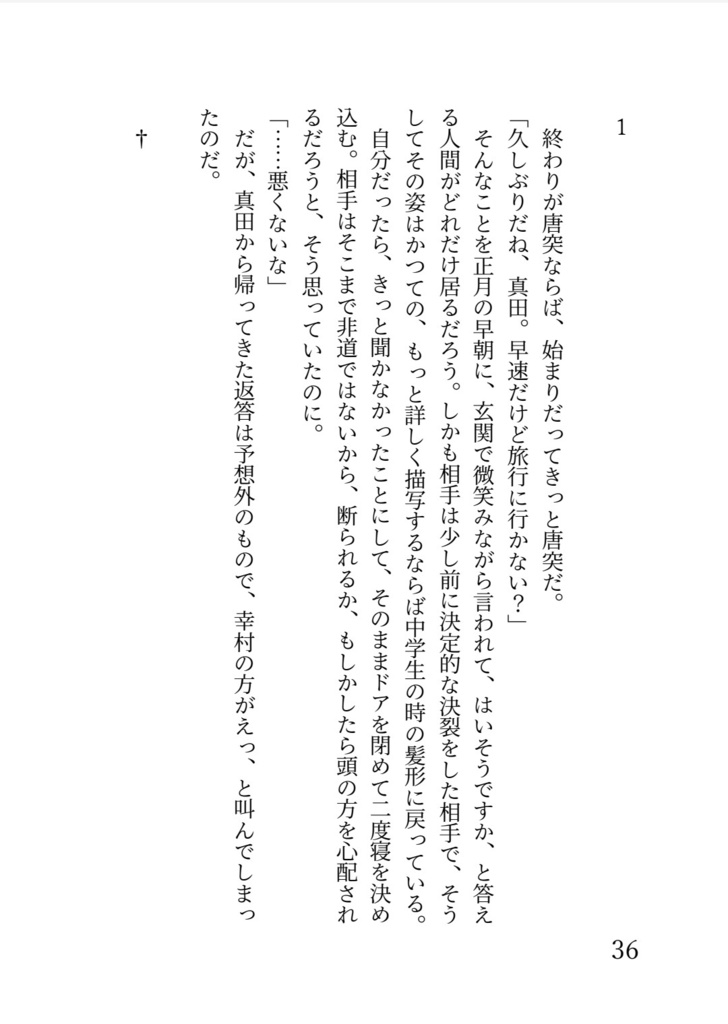 1
終わりが唐突ならば、始まりだってきっと唐突だ。
「久しぶりだね、真田。早速だけど旅行に行かない？」
そんなことを正月の早朝に、玄関で微笑みながら言われて、はいそうですか、と答え
る人間がどれだけ居るだろう。しかも相手は少し前に決定的な決裂をした相手で、そう
してその姿はかつての、もっと詳しく描写するならば中学生の時の髪形に戻っている。
自分だったら、きっと聞かなかったことにして、そのままドアを閉めて二度寝を決め
込む。相手はそこまで非道ではないから、断られるか、もしかしたら頭の方を心配され
るだろうと、そう思っていたのに。
「……悪くないな」
だが、真田から帰ってきた返答は予想外のもので、幸村の方がえっ、と叫んでしまっ
たのだ。
†
36